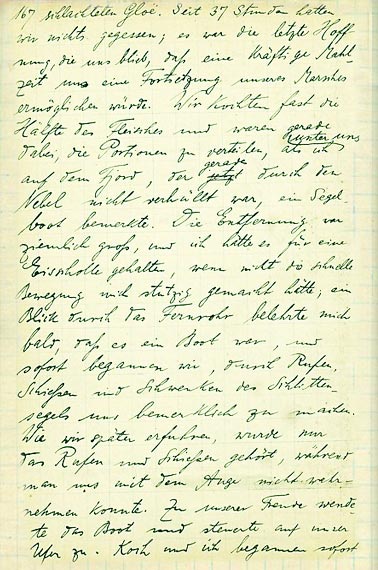 167 schlachteten Gloë. Seit 37 Stunden hatten
wir nichts gegessen; es war die letzte Hoff
nung, die uns blieb, daß eine kräftige Mahl-
zeit uns eine Fortsetzung unseres Marsches
ermöglichen würde. Wir kochten fast die
Hälfte des Fleisches und waren gerade
dabei, die Portionen zu verteilen, unter uns
als ich
auf dem Fjord, der gerade durch den
Nebel nicht verhüllt war, ein Segel
boot bemerkte. Die Entfernung war
ziemlich groß, und ich hätte es für eine
Eisscholle gehalten, wenn nicht die schnelle
Bewegung mich stutzig gemacht hätte; ein
Blick durch das Fernrohr belehrte mich
bald, daß es ein Boot war, und
sofort begannen wir, durch Rufen,
Schießen und Schwenken des Schlitten-
segels uns bemerklich zu machen.
Wie wir später erfuhren, wurde nur
das Rufen und Schießen gehört, während
man uns mit dem Auge nicht wahr-
nehmen konnte. Zu unserer Freude wende
te das Boot und steuerte auf unser
Ufer zu. Koch und ich begannen sofort